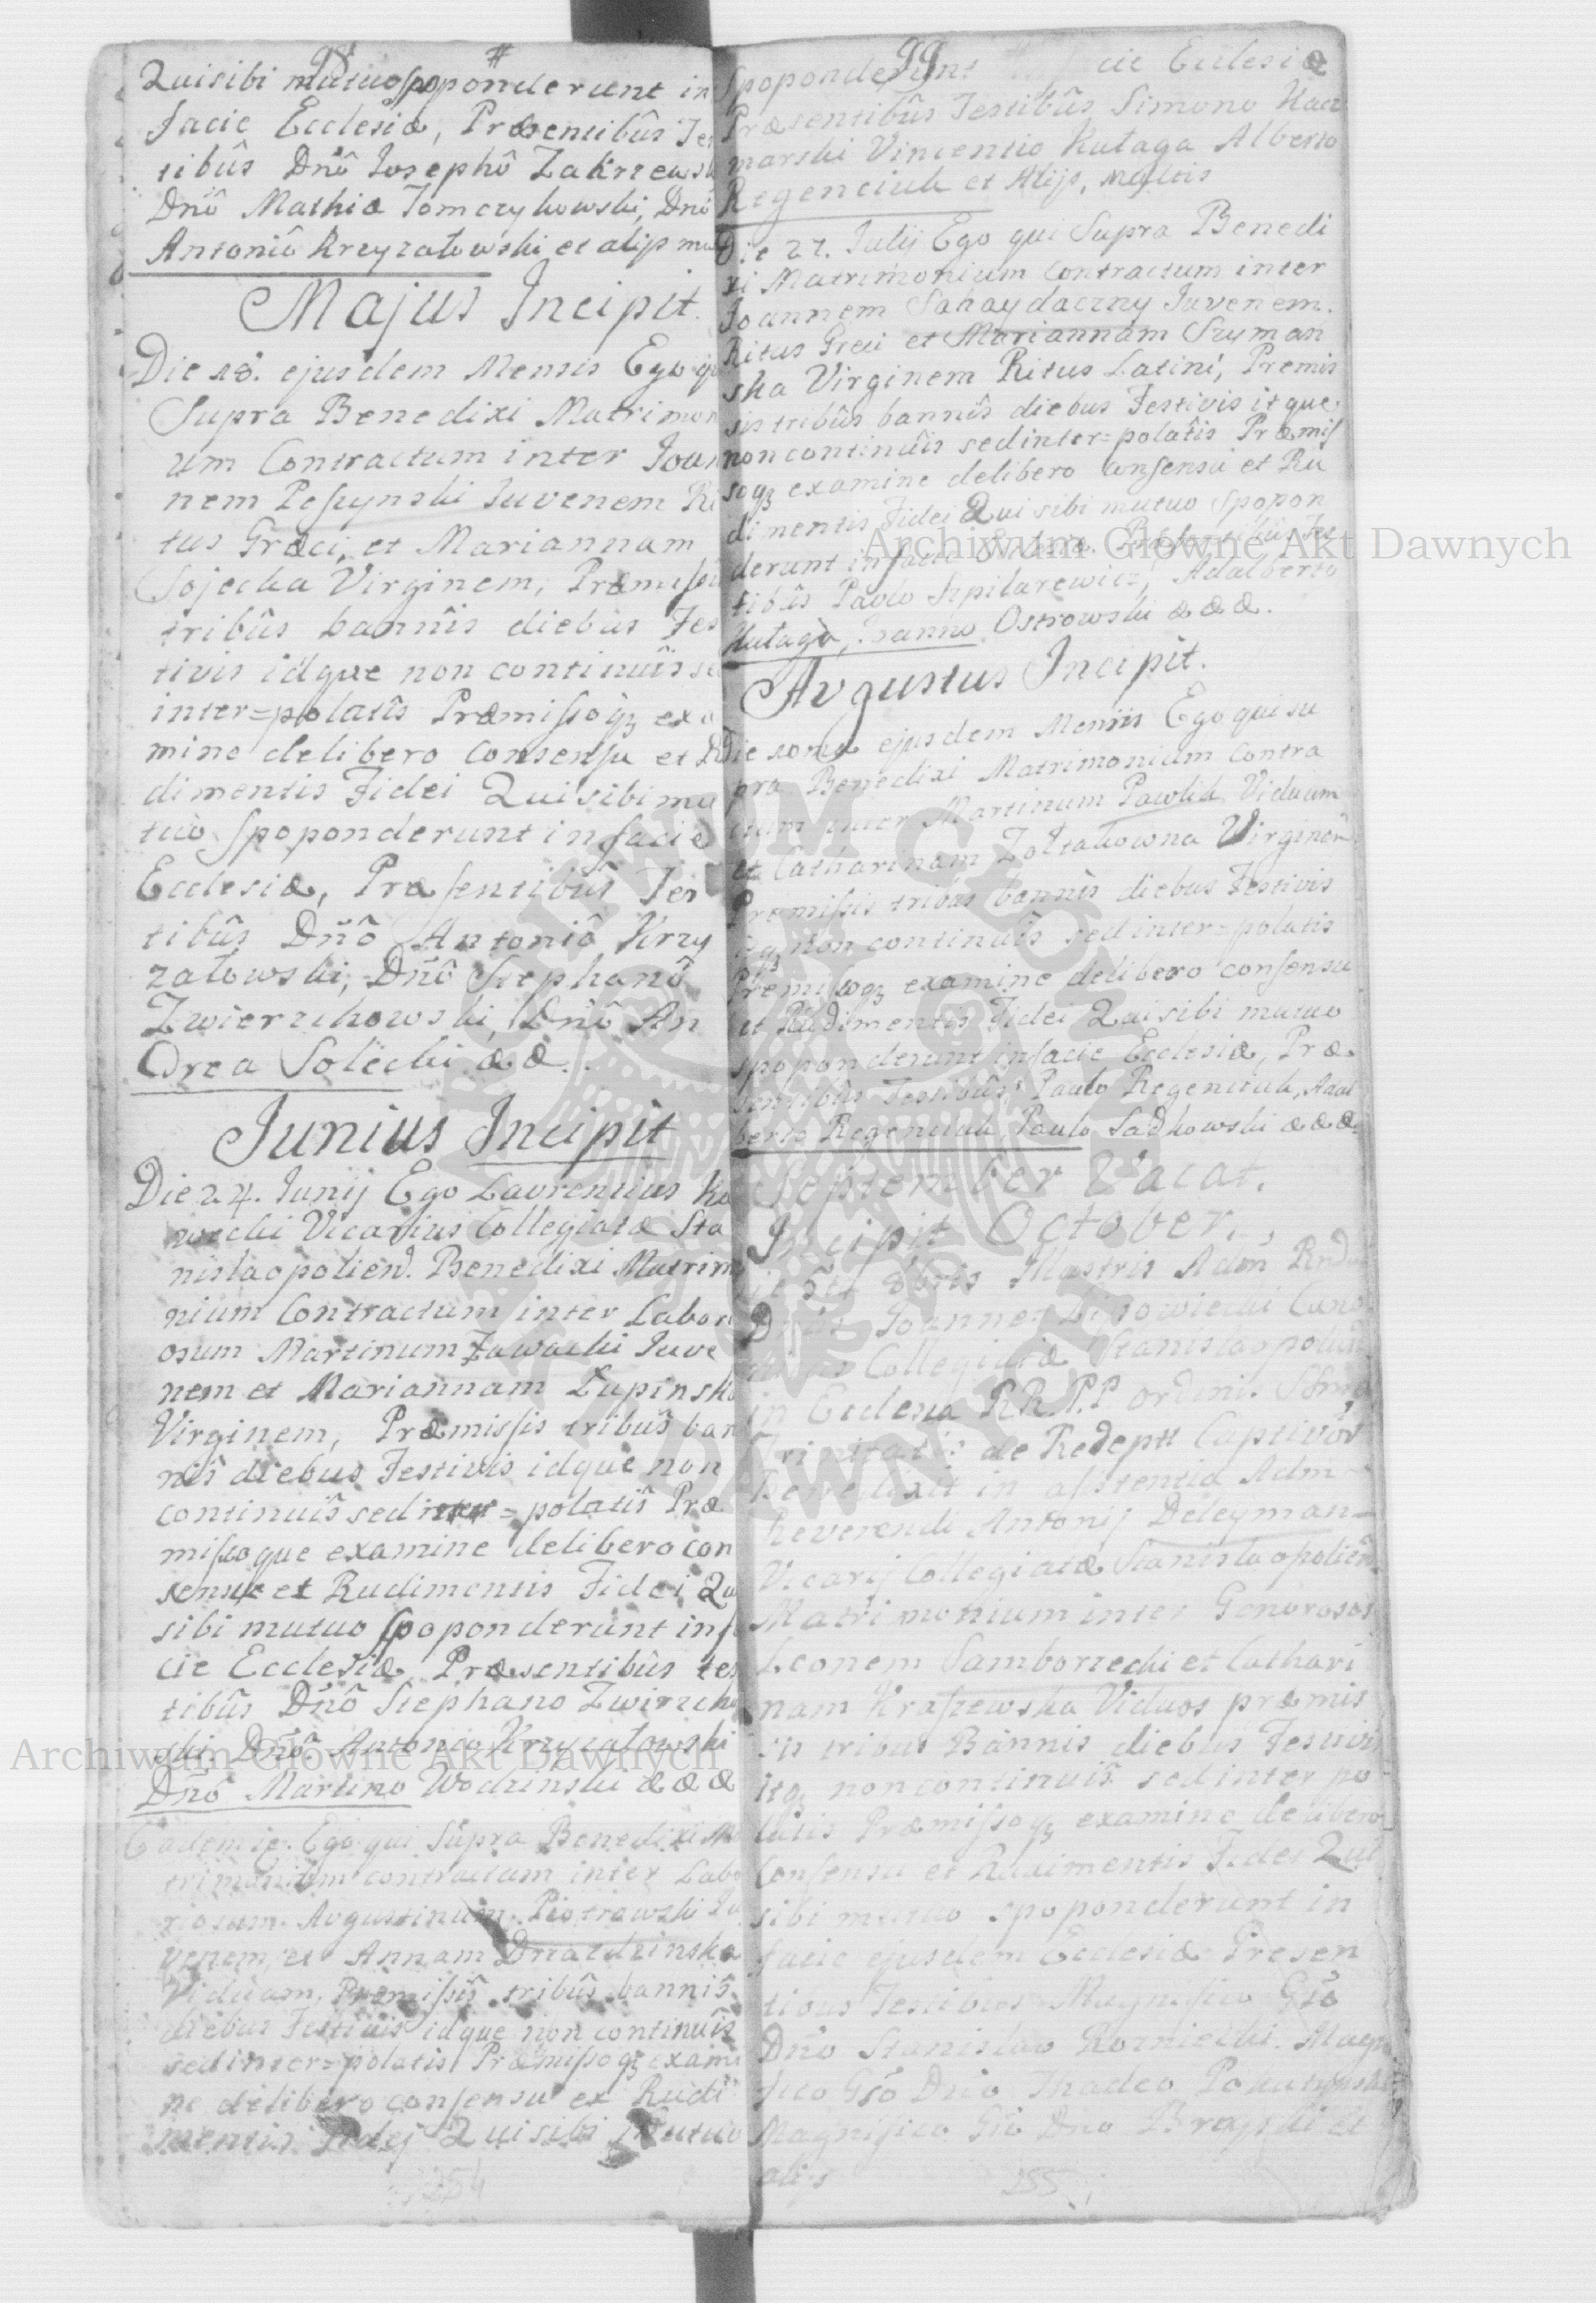 98 #
Quisibi mutuo spoponderunt in
facie Ecclesiæ, Præsentibûs Tes
tibûs Dnô Iosephô Zakrzewski
Dnô Mathia Tomczykowski, Dnô
Antoniô Krzyzatowski et alijs mu
Majus Incipit.
Die 18. ejusdem Mensis Ego qu
Supra Benedixi Matrimon
um Contractum inter Ioan
nem Peszynski Iuvenem Ri
tus Græci, et Mariannam
Sojecka Virginem, Præmissis
tribûs bannîs diebus Fes
tivis idque non continuîs se
inter=polatîs Præmissoqz exa
mine delibero consensu et Ru
dimentis Fidei Quisibi mu
tuo Spoponderunt in facie
Ecclesiæ, Præsentibûs Tes
tibûs Dnô Antoniô Krzy
zatowski, Dnô Stephanô
Zwierzchowski, Dnô An
Drea Solecki & &.
Junius Incipit
Die 24. Iunij Ego Laurentius Ko
wecki Vicarius Collegiatæ Sta
nislaopolien. Benedixi Matrimo
nium Contractum inter Labori
osum Martinum Zawacki Iuve
nem et Mariannam Lupinska
Virginem, Præmissis tribûs ban
nîs diebus Festivis idque non
continuîs sed inter=polatîs Præ
missoque examine delibero con
sensu et Rudimentis Fidei Qui
sibi mutuo spoponderunt in fa
cie Ecclesiæ Præsentibûs tes
tibûs Dnô Stephano Zwirzcho
ski Dnô Antonio Krzyzatowski
Dnô Martino Wodzinski & & &
Eadem Ego qui Supra Benedixi Ma
trimonium contractum inter Labo
riosum Augustinum Piotrowski Iu
venem et Annam Drrazdzinska
Viduam, Premissîs tribûs bannîs
diebus Festivis idque non continuîs
sed inter=polatis Præmissoqz exami
ne delibero consensu et Rudi
mentis Fidej Quisibi Mutuo
254
99
Spoponderunt facie Ecclesiæ
Præsentibûs Testibûs Simono Kacz
marski Vincentio Kulaga Alberto
Regenciuk et Alijs, Multis
Die 27. Iulij Ego qui Supra Benedi
xi Matrimonium contractum inter
Ioannem Sahaydaczny Iuvenem.
Ritus Greci et Mariannam Szyman
ska Virginem Ritus Latini, Premis
sis tribûs bannîs diebus Festivis itque
non continuîs sed inter=polatîs Præmis
soqz examine delibero consensu et Ru
dimentis Fidei Qui sibi mutuo Spopon
derunt in facie Ecclesiæ Præsentibûs Tes
tibûs Paolo Szpilarewicz, Adalberto
Kulaga, Ioanno Ostrowski & & &.
Avgustus Incipit.
Die 10ma ejusdem Mensis Ego qui su
pra Benedixi Matrimonium Contra
ctum inter Martinum Pawlik Viduum
et Catharinam Zoltakowna Virginem
Premissis tribus bannîs diebus Festivis
itqz non continuîs sed inter=polatis
Premissoqz examine delibero consensu
et Rudimentis Fidei Quisibi mutuo
spoponderunt in facie Ecclesiæ, Præ
sentibûs Testibûs Paulo Regenciuk, Adal
berto Regenciuk, Paulo Sadkowski & & &
September Vacat.
Incipit October.
8bris Illustris Adm Rndus
Dnus Ioannes Cano
nicus Collegiatæ Stanislaopolien
in Ecclesia RR.P.P ordinis SSmæ
Trinitatis de Redept Captivor
Benedixit in assitentia Adm
Reverendi Antonij Deleyman
Vicarij Collegiatæ Stanislaopolien
Matrimonium inter Generosos
Leonem Samborzecki et Cathari
nam Kraszewska Viduos præmis
sis tribus Bannis diebus Festivis
itqz non continuîs sed inter po
latis Præmissoqz examine delibero
Consensu et Rudimentis Fidei Qui
sibi mutuo spoponderunt in
facie ejusdem Ecclesiæ Presen
tibus Testibus Magnifico Gso
Dno Stanislao Kozniecki. Magni
fico Gso Dno Thadeo
Magnifico Gso Dno et
alijs
255
Archiwum Główne Akt Dawnych
Archiwum Główne Akt Dawnych
ARCHIWUM GŁÓWNE AKT DAWNYCH